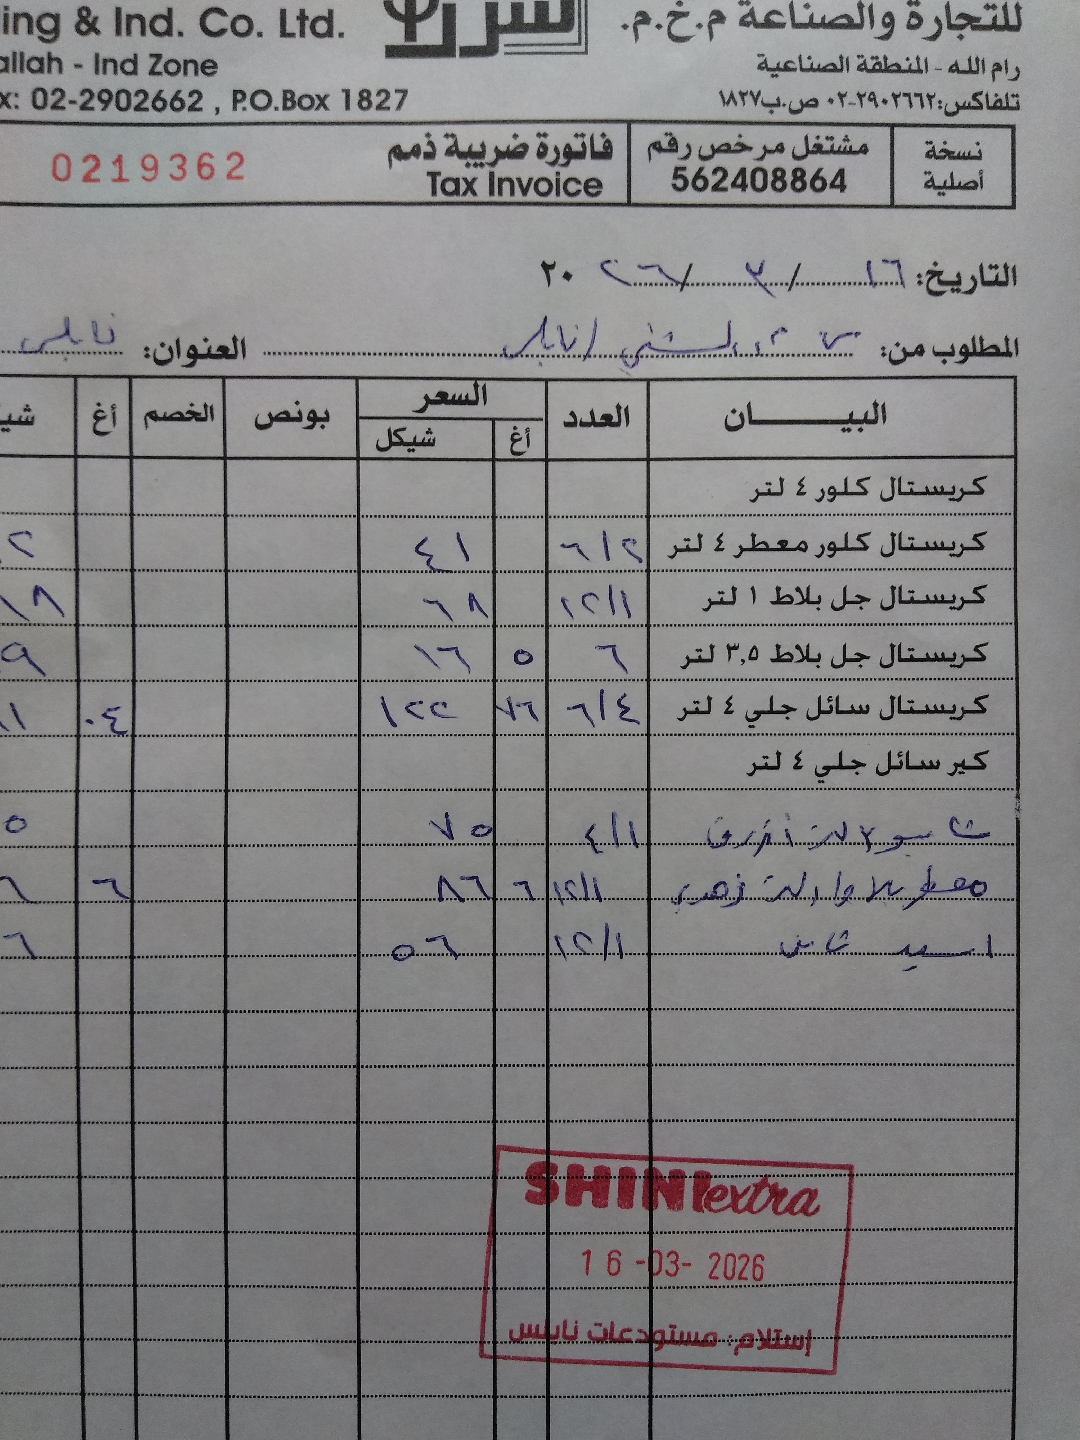 ing & Ind. Co. Ltd. للتجارة والصناعة م.خ.م.
allah - Ind Zone رام الله - المنطقة الصناعية
x: 02-2902662 , P.O.Box 1827 تلفاكس:٢٩٠٢٦٦٢-٠٢ ص.ب١٨٢٧
نسخة أصلية مشتغل مرخص رقم 562408864 فاتورة ضريبة ذمم Tax Invoice 0219362
التاريخ: ١٦ / ٣ / ٢٠٢٦
المطلوب من: الشني / نابلس العنوان: نابلس
البيـــــان العدد السعر أغ شيكل بونص الخصم أغ شي
كريستال كلور ٤ لتر
كريستال كلور معطر ٤ لتر ٦/٢ ٤١ ٢
كريستال جل بلاط ١ لتر ١٢/١ ٦٨ ٦٨
كريستال جل بلاط ٣,٥ لتر ٦ ٥ ١٦ ٩
كريستال سائل جلي ٤ لتر ٦/٤ ٧٦ ١٢٢ ٠٤ ١١
كير سائل جلي ٤ لتر
شامبو ٣ لتر أزرق ٤/١ ٧٥ ٥
معطر ١٢/١ ٦ ٨٦ ٦ ٦
اسيد ١٢/١ ٥٦ ٦
SHINI extra
16-03-2026
إستلام: مستودعات نابلس